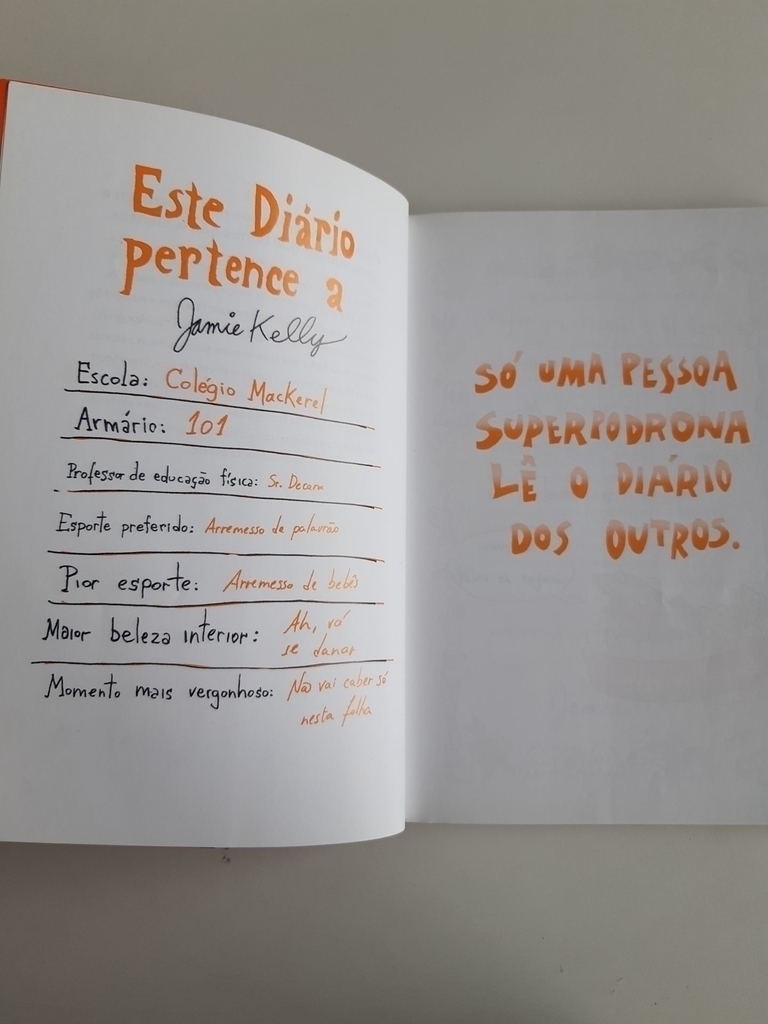 Este Diário
pertence a
Jamie Kelly
Escola: Colégio Mackerel
Armário: 101
Professor de educação física: Sr. Decam
Esporte preferido: Arremesso de palavrão
Pior esporte: Arremesso de bebês
Maior beleza interior: Ah, vá
se danar
Momento mais vergonhoso: Não vai caber só
nesta folha
SÓ UMA PESSOA
SUPERPODRONA
LÊ O DIÁRIO
DOS OUTROS.